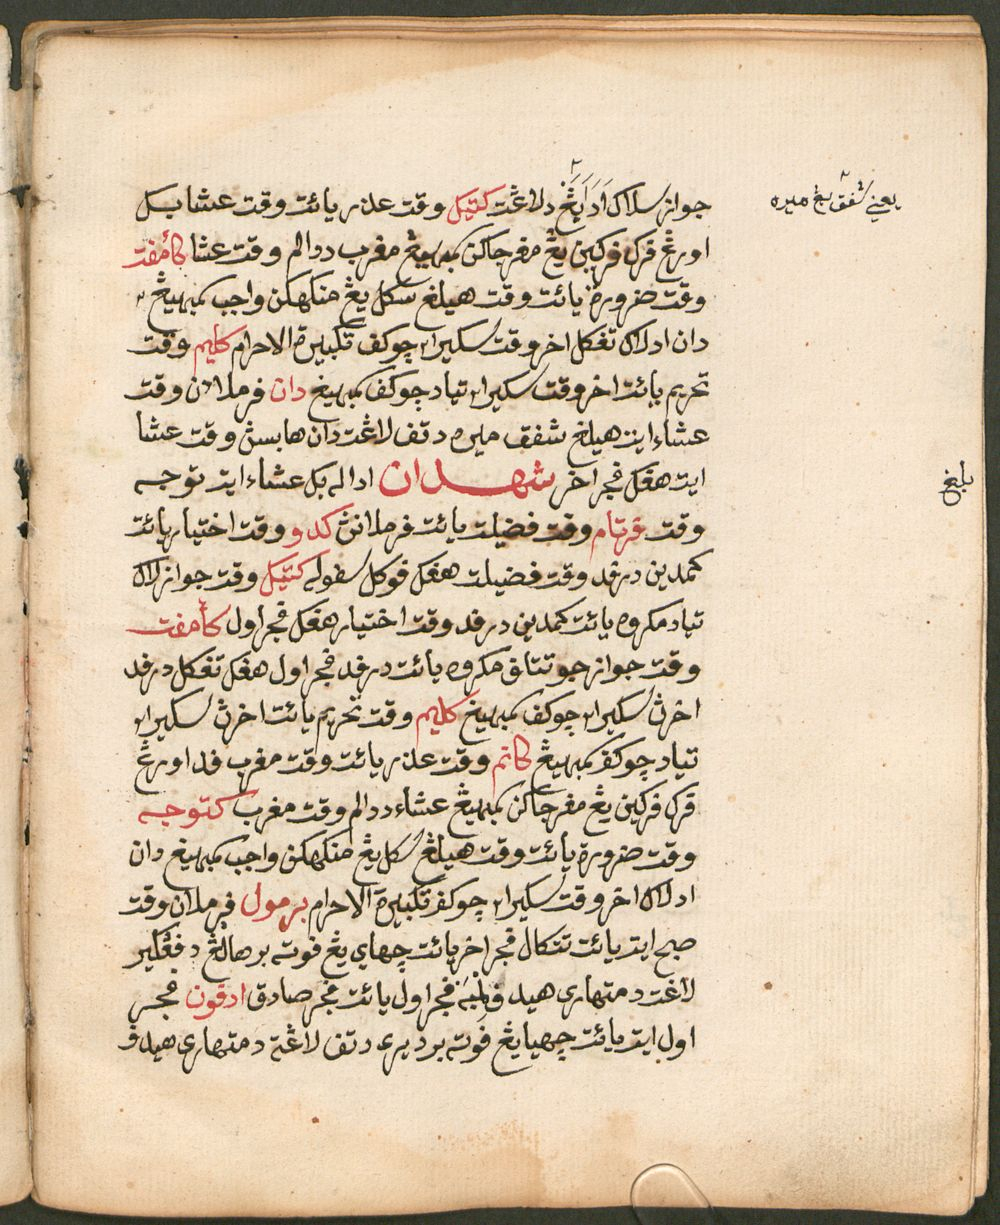 جواز سلاڬ اد يڠ دلاڠت كتيڬ وقت عذر يائت وقت عشا بڬ
يعني شفق يڠ ميره
اورڠ ڤرڬ ڤركين يڠ مڠرجاكن سمبهيڠ مغرب دوالم وقت عشا كأمڤت
وقت ضرورة يائت وقت هيلڠ سڬل يڠ منڬهكن واجب سمبهيڠ
دان اد لاڬ تڠڬل اخر وقت سكيرا٢ چوكڤ تكبيرة الاحرام كليم وقت
تحريم يائت اخر وقت سكيرا٢ تياد چوكڤ سمبهيڠ دان ڤرملاءن وقت
عشاء ايت هيلڠ شفق ميره دتڤ لاڠت دان هابسڽ وقت عشا
ايت هڠڬ فجر اخر شهدان اداله بڬ عشاء ايت توجه
بلغ
وقت ڤرتام وقت فضيلت يائت ڤرملاءنڽ كدو وقت اختيار يائت
كمدين درڤد وقت فضيلت هڠڬ ڤوكل سڤوله كتيڬ وقت جواز لاڬ
تياد مكروه يائت كمدين درڤد وقت اختيار هڠڬ فجر اول كأمڤت
وقت جواز جو تتاڤ مكروه يائت درڤد فجر اول هڠڬ تڠڬل درڤد
اخرڽ سكيرا٢ چوكڤ سمبهيڠ كليم وقت تحريم يائت اخرڽ سكيرا٢
تياد چوكڤ سمبهيڠ كانم وقت عذر يائت وقت مغرب ڤد اورڠ
ڤرڬ ڤركين يڠ مڠرجاكن سمبهيڠ عشاء ددالم وقت مغرب كتوجه
وقت ضرورة يائت وقت هيلڠ سڬل يڠ منڬهكن واجب سمبهيڠ دان
اد لاڬ اخر وقت سكيرا٢ چوكڤ تكبيرة الاحرام برمول ڤرملاءن وقت
صبح ايت يائت تتكال فجر اخر يائت چهاي يڠ ڤوته برهالڠ دڤڠڬير
لاڠت دمتهاري هيدڤ فجر اول يائت فجر صادق ادڤون فجر
اول ايت يائت چهيا يڠ ڤوته برديري دتڤ لاڠت دمتهاري هيدڤ